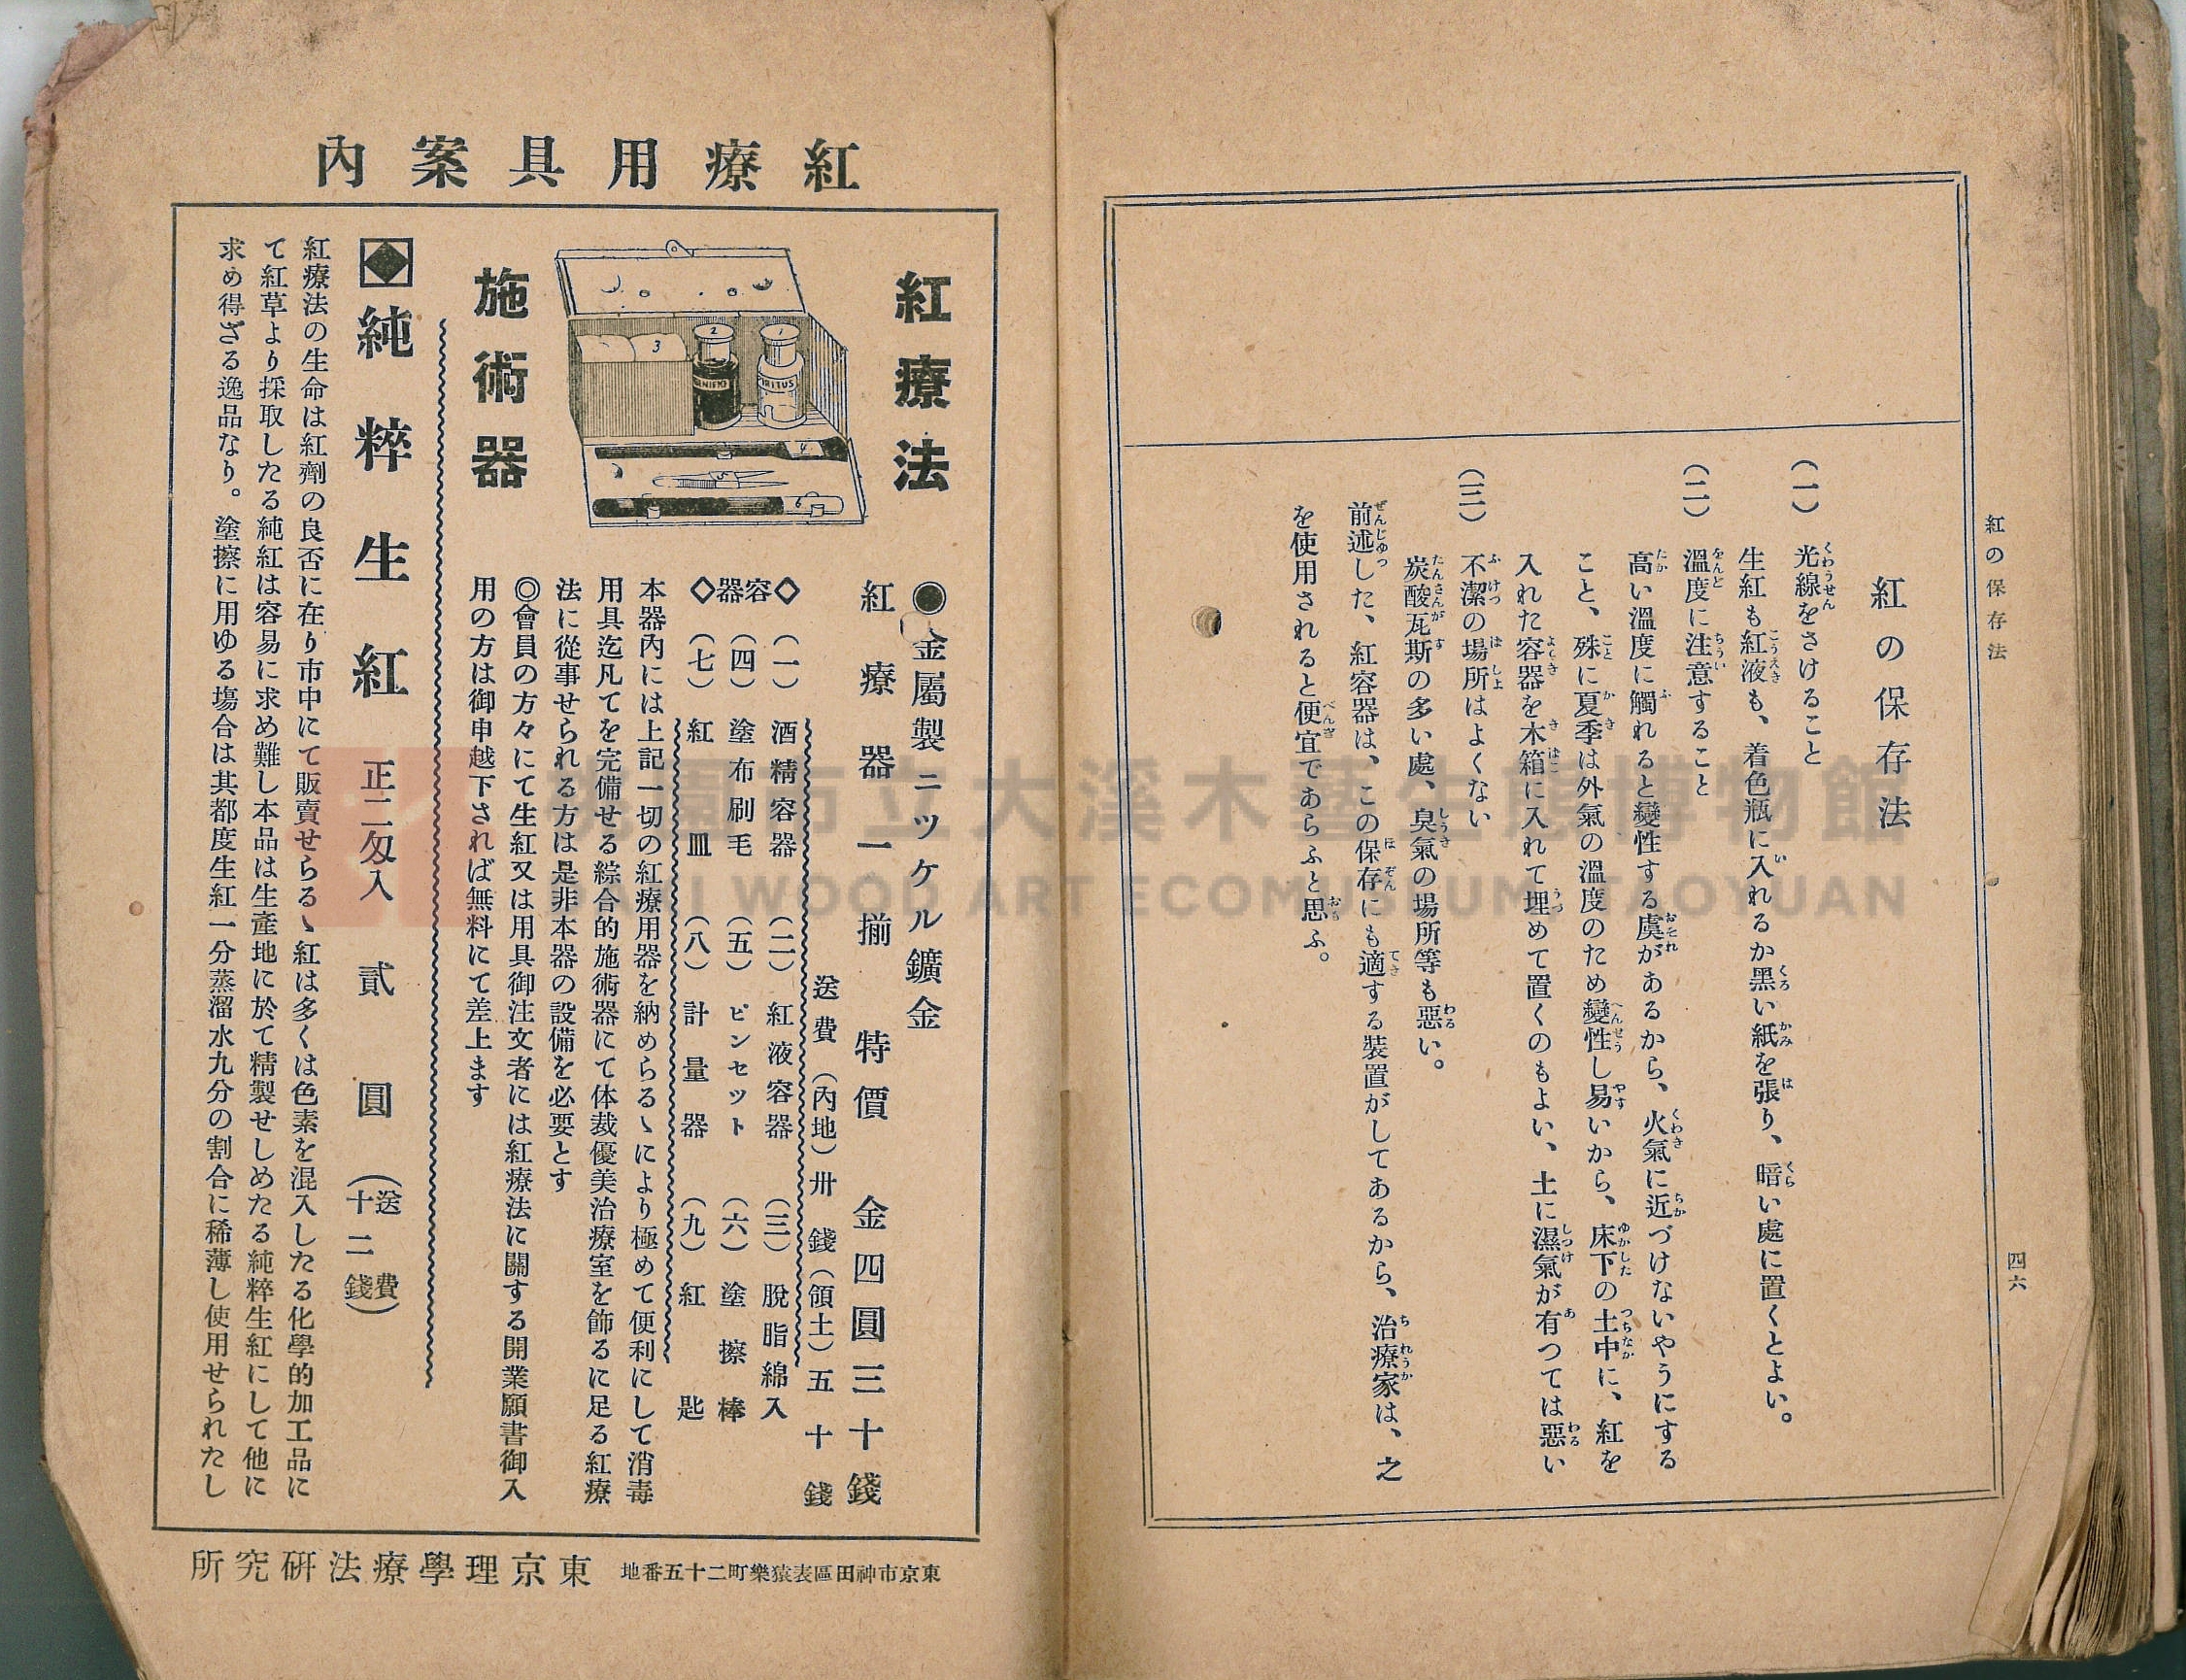 紅の保存法
四六
紅の保存法
(一) 光線をさけること
生紅も紅液も、着色瓶に入れるか黑い紙を張り、暗い處に置くとよい。
(二) 溫度に注意すること
高い溫度に觸れると變性する虞があるから、火氣に近づけないやうにする
こと、殊に夏季は外氣の溫度のため變性し易いから、床下の土中に、紅を
入れた容器を木箱に入れて埋めて置くのもよい、土に濕氣が有つては惡い
(三) 不潔の場所はよくない
炭酸瓦斯の多い處、臭氣の場所等も惡い。
前述した、紅容器は、この保存にも適する裝置がしてあるから、治療家は、之
を使用されると便宜であらふと思ふ。
紅療用具案內
紅療法
施術器
1
2
3
4
6
◉金屬製ニツケル鑛金
紅療器一揃 特價 金四圓三十錢
送費(內地)卅錢(領土)五十錢
◇容器◇
(一) 酒精容器 (二) 紅液容器 (三) 脫脂綿入
(四) 塗布刷毛 (五) ピンセット (六) 塗擦棒
(七) 紅皿 (八) 計量器 (九) 紅匙
本器內には上記一切の紅療用器を納めらるゝにより極めて便利にして消毒
用具迄凡てを完備せる綜合的施術器にて体裁優美治療室を飾るに足る紅療
法に從事せられる方は是非本器の設備を必要とす
◎會員の方々にて生紅又は用具御注文者には紅療法に關する開業願書御入
用の方は御申越下されば無料にて差上ます
純粹生紅 正二匁入 貳圓 (送費十二錢)
紅療法の生命は紅劑の良否に在り市中にて販賣せらるゝ紅は多くは色素を混入したる化學的加工品に
て紅草より採取したる純紅は容易に求め難し本品は生產地に於て精製せしめたる純粹生紅にして他に
求め得ざる逸品なり。塗擦に用ゆる場合は其都度生紅一分蒸溜水九分の割合に稀薄し使用せられたし
東京市神田區表猿樂町二十五番地 東京理學療法硏究所
桃園市立大溪木藝生態博物館
DAXI WOOD ART ECOMUSEUM, TAOYUAN